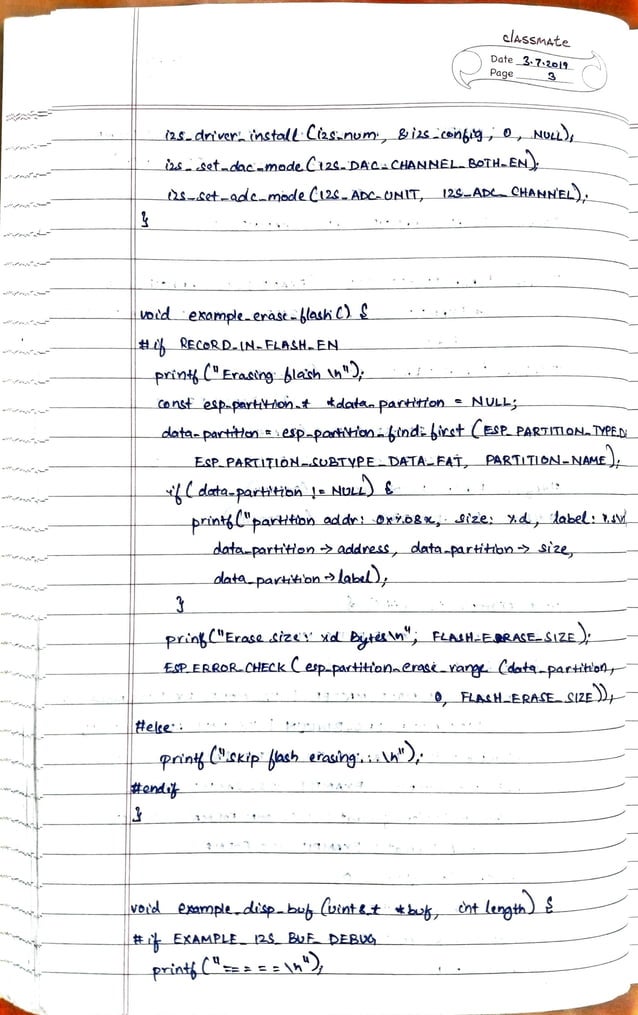 classmate
Date 3.7.2019
Page 3
i2s_driver_install (i2s_num, &i2s_config, 0, NULL);
i2s_set_dac_mode (I2S_DAC_CHANNEL_BOTH_EN);
i2s_set_adc_mode (I2S_ADC_UNIT, I2S_ADC_CHANNEL);
}
void example_erase_flash () {
#if RECORD_IN_FLASH_EN
printf ("Erasing flash \n");
const esp_partition_t *data_partition = NULL;
data_partition = esp_partition_find_first (ESP_PARTITION_TYPE_D
ESP_PARTITION_SUBTYPE_DATA_FAT, PARTITION_NAME);
if (data_partition != NULL) {
printf ("partition addr: 0x%08x, size: %d, label: %s\
data_partition → address, data_partition → size,
data_partition → label);
}
printf ("Erase size: %d Bytes\n", FLASH_ERASE_SIZE);
ESP_ERROR_CHECK (esp_partition_erase_range (data_partition,
0, FLASH_ERASE_SIZE));
#else
printf ("skip flash erasing...\n");
#endif
}
void example_disp_buf (uint8_t *buf, int length) {
#if EXAMPLE_I2S_BUF_DEBUG
printf ("=====\n");